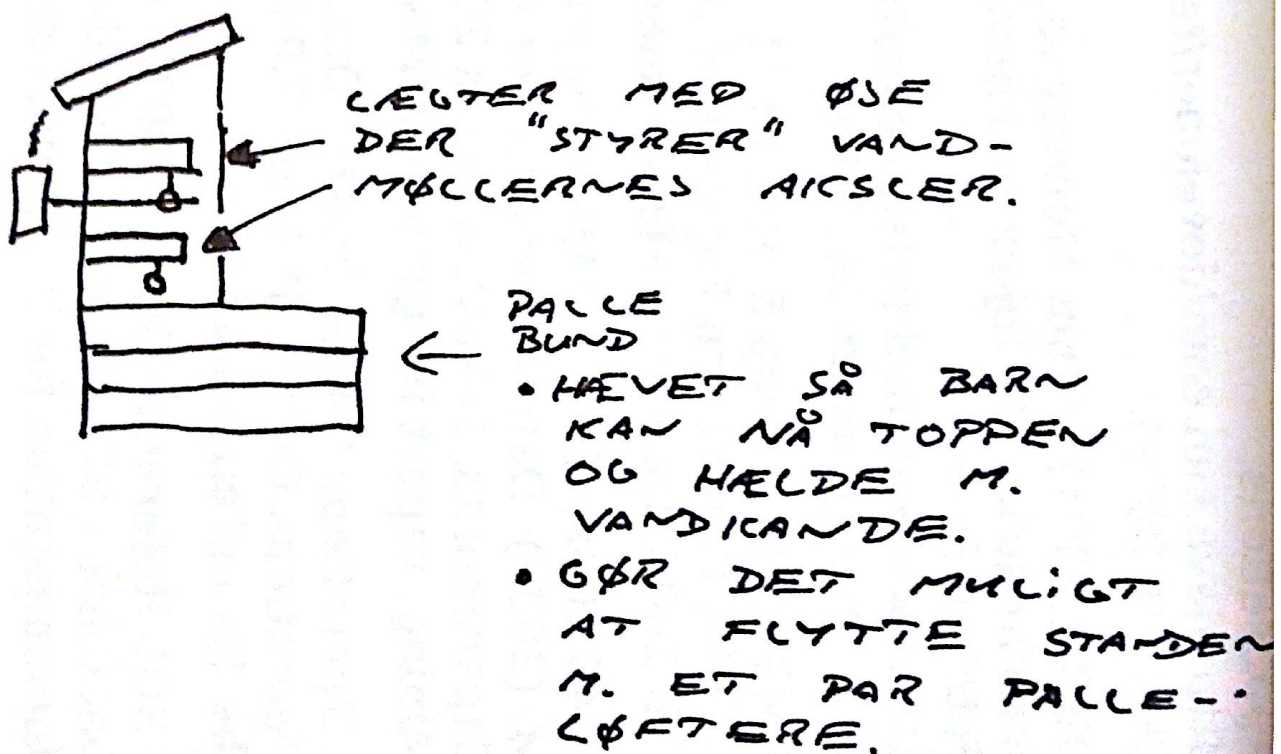 LÆGTER MED ØSE
DER "STYRER" VAND-
MØLLERNES AKSLER.
PALLE
BUND
• HÆVET SÅ BARN
KAN NÅ TOPPEN
OG HÆLDE M.
VANDKANDE.
• GØR DET MULIGT
AT FLYTTE STANDEN
M. ET PAR PALLE-
LØFTERE.